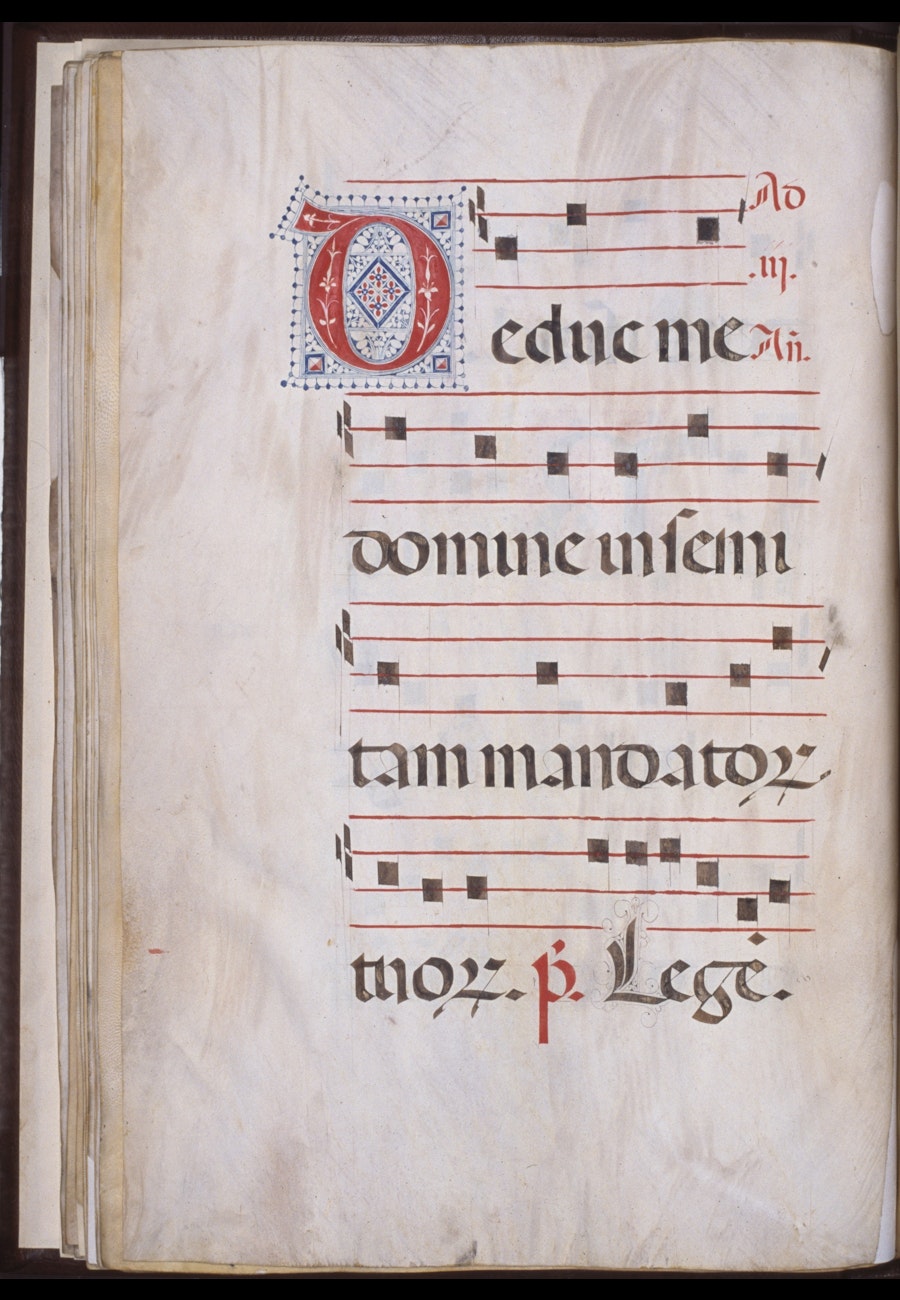 Ad
.iij.
Deduc me Añ.
domine in semi
tam mandatoꝝ
tuoꝝ. p̃. Lege.